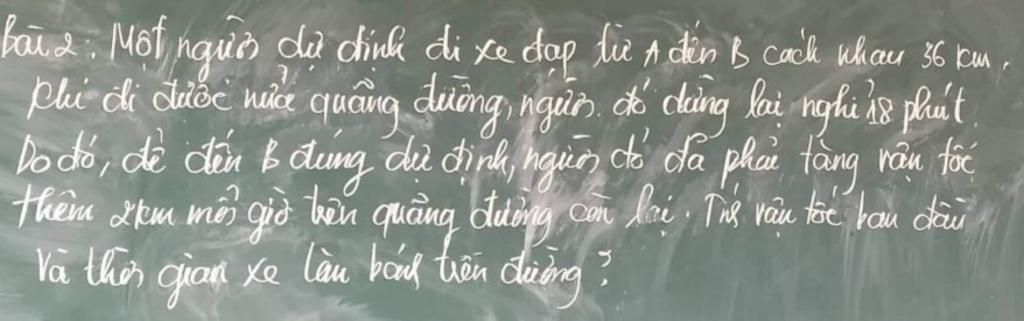 Bài 2: Một người dự định đi xe đạp từ A đến B cách nhau 36 km.
Khi đi được nửa quãng đường, người đó dừng lại nghỉ 18 phút
Do đó, để đến B đúng dự định, người đó đã phải tăng vận tốc
thêm 2km mỗi giờ trên quãng đường còn lại. Tính vận tốc ban đầu
Và thời gian xe lăn bánh trên đường?